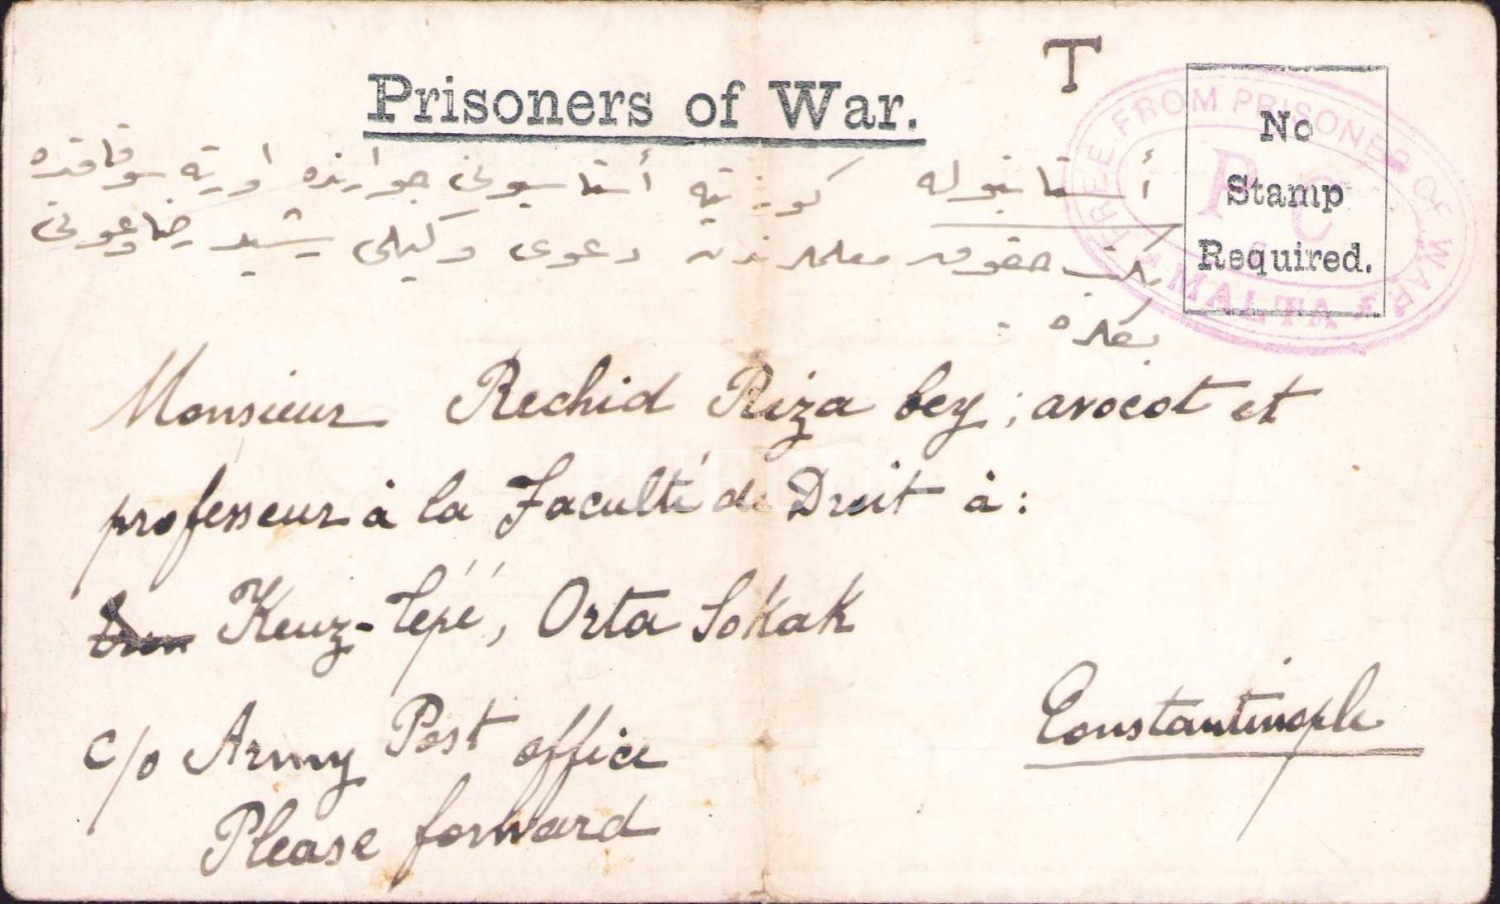 T
Prisoners of War.
No
Stamp
Required.
FREE FROM PRISONER OF WAR
P C
MALTA
أستانبوله كوزتپه أستاسيونی جوارنده اورته سوقاقده
مكتب حقوق معلملرندن دعوی وكيلی رشيد رضا
Monsieur Rechid Riza bey; avocat et
professeur à la Faculté de Droit à:
Keuz-Tépé, Orta Sokak
Constantinople
c/o Army Post office
Please forward